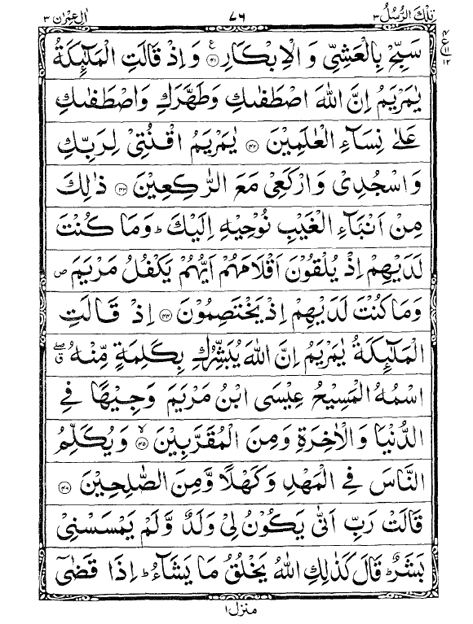 تِلْكَ الرُّسُلُ ٣ ٧٦ اٰلِ عِمْرٰن ٣
سَبِّحْ بِالْعَشِىِّ وَ الْاِبْكَارِ ﴿٤١﴾ وَ اِذْ قَالَتِ الْمَلٰٓئِكَةُ
يٰمَرْيَمُ اِنَّ اللهَ اصْطَفٰىكِ وَطَهَّرَكِ وَاصْطَفٰىكِ
عَلٰى نِسَآءِ الْعٰلَمِيْنَ ﴿٤٢﴾ يٰمَرْيَمُ اقْنُتِىْ لِرَبِّكِ
وَاسْجُدِىْ وَارْكَعِىْ مَعَ الرّٰكِعِيْنَ ﴿٤٣﴾ ذٰلِكَ
مِنْ اَنْۢبَآءِ الْغَيْبِ نُوْحِيْهِ اِلَيْكَ ؕ وَمَا كُنْتَ
لَدَيْهِمْ اِذْ يُلْقُوْنَ اَقْلَامَهُمْ اَيُّهُمْ يَكْفُلُ مَرْيَمَ ۪
وَمَا كُنْتَ لَدَيْهِمْ اِذْ يَخْتَصِمُوْنَ ﴿٤٤﴾ اِذْ قَالَتِ
الْمَلٰٓئِكَةُ يٰمَرْيَمُ اِنَّ اللهَ يُبَشِّرُكِ بِكَلِمَةٍ مِّنْهُ ۖۗ
اسْمُهُ الْمَسِيْحُ عِيْسَى ابْنُ مَرْيَمَ وَجِيْهًا فِى
الدُّنْيَا وَالْاٰخِرَةِ وَمِنَ الْمُقَرَّبِيْنَ ﴿٤٥﴾ وَيُكَلِّمُ
النَّاسَ فِى الْمَهْدِ وَكَهْلًا وَّمِنَ الصّٰلِحِيْنَ ﴿٤٦﴾
قَالَتْ رَبِّ اَنّٰى يَكُوْنُ لِىْ وَلَدٌ وَّلَمْ يَمْسَسْنِىْ
بَشَرٌ ؕ قَالَ كَذٰلِكِ اللهُ يَخْلُقُ مَا يَشَآءُ ؕ اِذَا قَضٰٓى
منزل ١